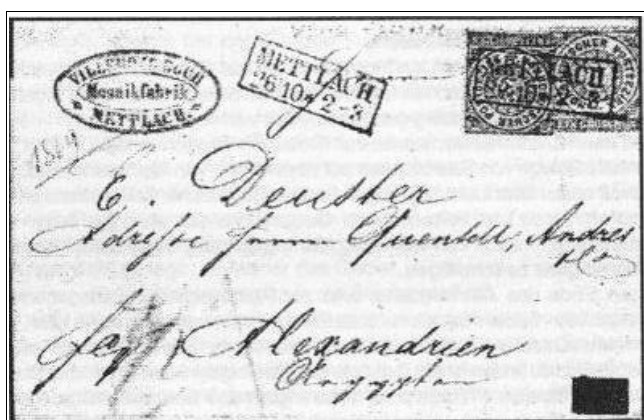 VILLEROY & BOCH
Mosaikfabrik
METTLACH.
METTLACH
26 10 2-3
METTLACH
26 10 2-3
E. Deuster
Adresse Herrn Quentell, Andres
& Co
Alexandrien
Aegypten